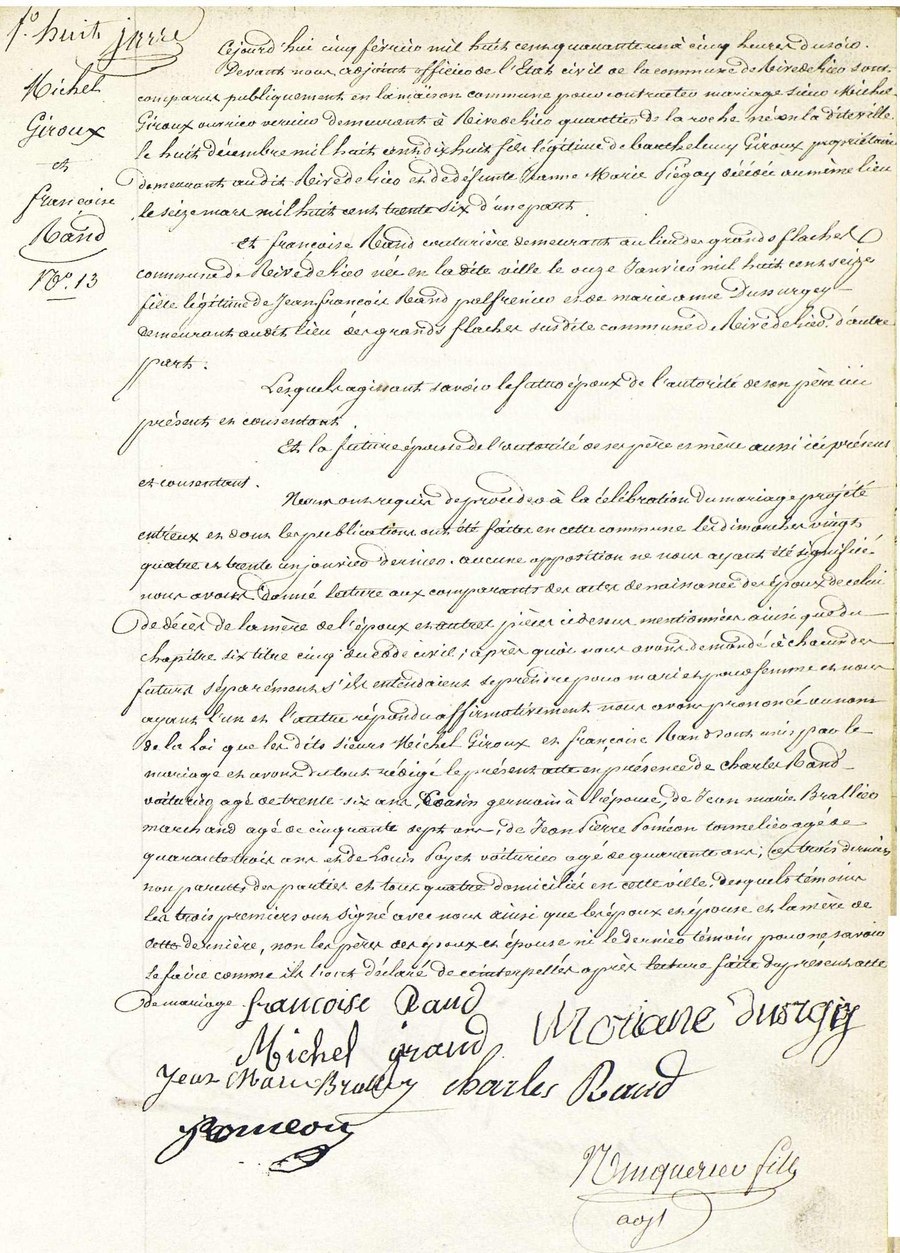 fo. huit
Michel
Giroux
et
françoise
Rand
No. 13
Cejourd'hui cinq février mil huit cent quarante un à cinq heures du soir.
Devant nous adjoint officier de l'Etat civil de la commune de Rivedegier sont
comparus publiquement en la maison commune pour contracter mariage sieur Michel
Giroux ouvrier verrier demeurant à Rivedegier quartier de la roche né en la dite ville
le huit décembre mil huit cent dix huit fils légitime de barthelemy Giroux propriétaire
demeurant audit Rivedegier et de défunte Jeanne Marie Piegay décédée au même lieu
le seize mars mil huit cent trente six d'une part
Et françoise Rand couturière demeurant au lieu des grands flaches
commune de Rivedegier née en la dite ville le onze Janvier mil huit cent seize
fille légitime de Jean françois Rand palfrenier et de marie anne Dusurgey
demeurant audit lieu des grands flaches susdite commune de Rivedegier d'autre
part.
Lesquels agissant savoir le futur époux de l'autorité de son père ici
présent et consentant
Et la future épouse de l'autorité de ses père et mère aussi ici présens
et consentant.
Nous ont requis de procéder à la célébration du mariage projété
entr'eux et dont les publications ont été faites en cette commune les dimanches vingt
quatre et trente un janvier dernier. aucune opposition ne nous ayant été signifiée
nous avons donné lecture aux comparants des actes de naissance des époux de celui
de décès de la mère de l'époux et autres pièces ci dessus mentionnées ainsi que du
chapitre six titre cinq du code civil; après quoi nous avons demandé à chacun des
futurs séparément s'ils entendaient se prendre pour mari et pour femme et nous
ayant l'un et l'autre répondu affirmativement nous avons prononcé au nom
de la Loi que les dits sieurs Michel Giroux et françoise Rand sont unis par le
mariage et avons du tout rédigé le présent acte en présence de Charles Rand
voiturier agé de trente six ans, Cousin germain à l'épouse, de Jean marie Brallier
marchand agé de cinquante sept ans, de Jean Pierre Poméon tonnelier agé de
quarante trois ans et de Louis Poyet voiturier agé de quarante ans; ces trois derniers
non parents des parties et tous quatre domiciliés en cette ville, desquels témoins
les trois premiers ont signé avec nous ainsi que les époux et épouse et la mère de
cette dernière, non les pères des époux et épouse ni le dernier témoin pour ne savoir
le faire comme ils l'ont déclaré de ce interpellés après lecture faite du présent acte
de mariage.
françoise Rand
Michel
Jean Marie
charles Rand
pomeon
fils
adjt